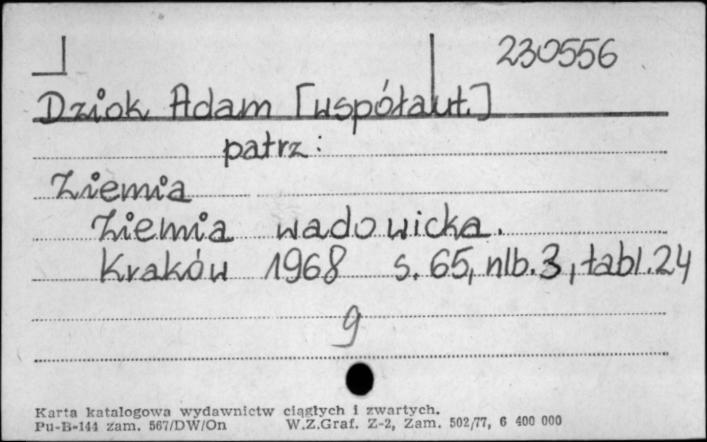 230556
Dziok Adam [współaut.]
patrz:
Ziemia
Ziemia wadowicka.
Kraków 1968 s. 65, nlb. 3, tabl. 24
9
Karta katalogowa wydawnictw ciągłych i zwartych.
Pu-B-144 zam. 567/DW/On W.Z.Graf. Z-2, Zam. 502/77, 6 400 000